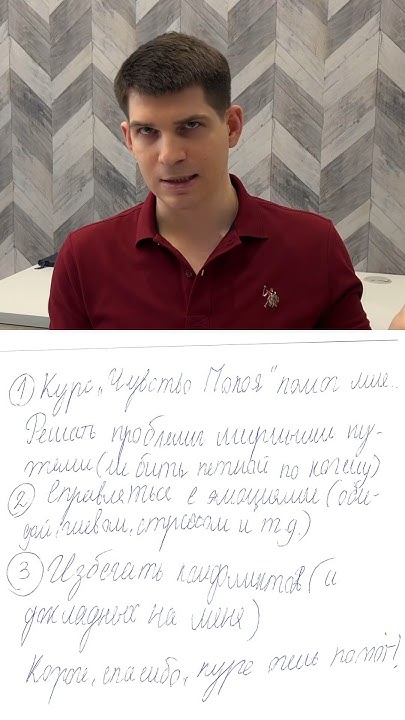 ① Курс „Чувство Покоя" помог мне..
Решать проблемы мирными пу-
тями (не бить петлёй по
② Справляться с эмоциями (оби-
дой, гневом, стрессом и т.д.)
③ Избегать конфликтов (и
докладных на меня)
Короч, спасибо, курс очень помог!